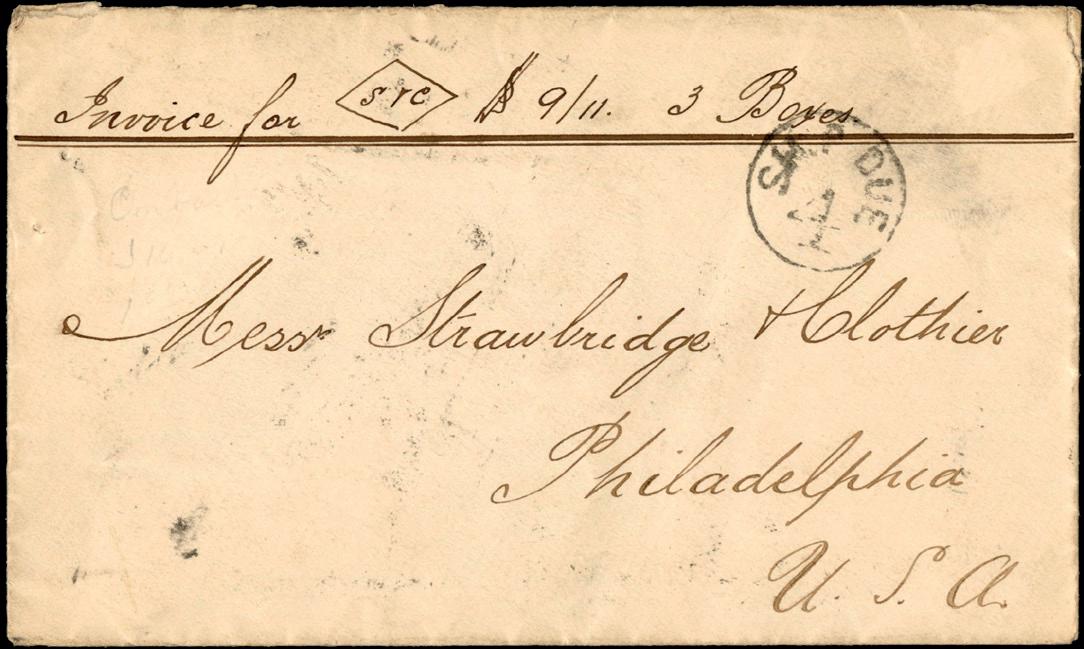 Invoice for S & C 9/11. 3 Boxes
SHIP DUE
4
Messrs Strawbridge & Clothier
Philadelphia
U. S. A.